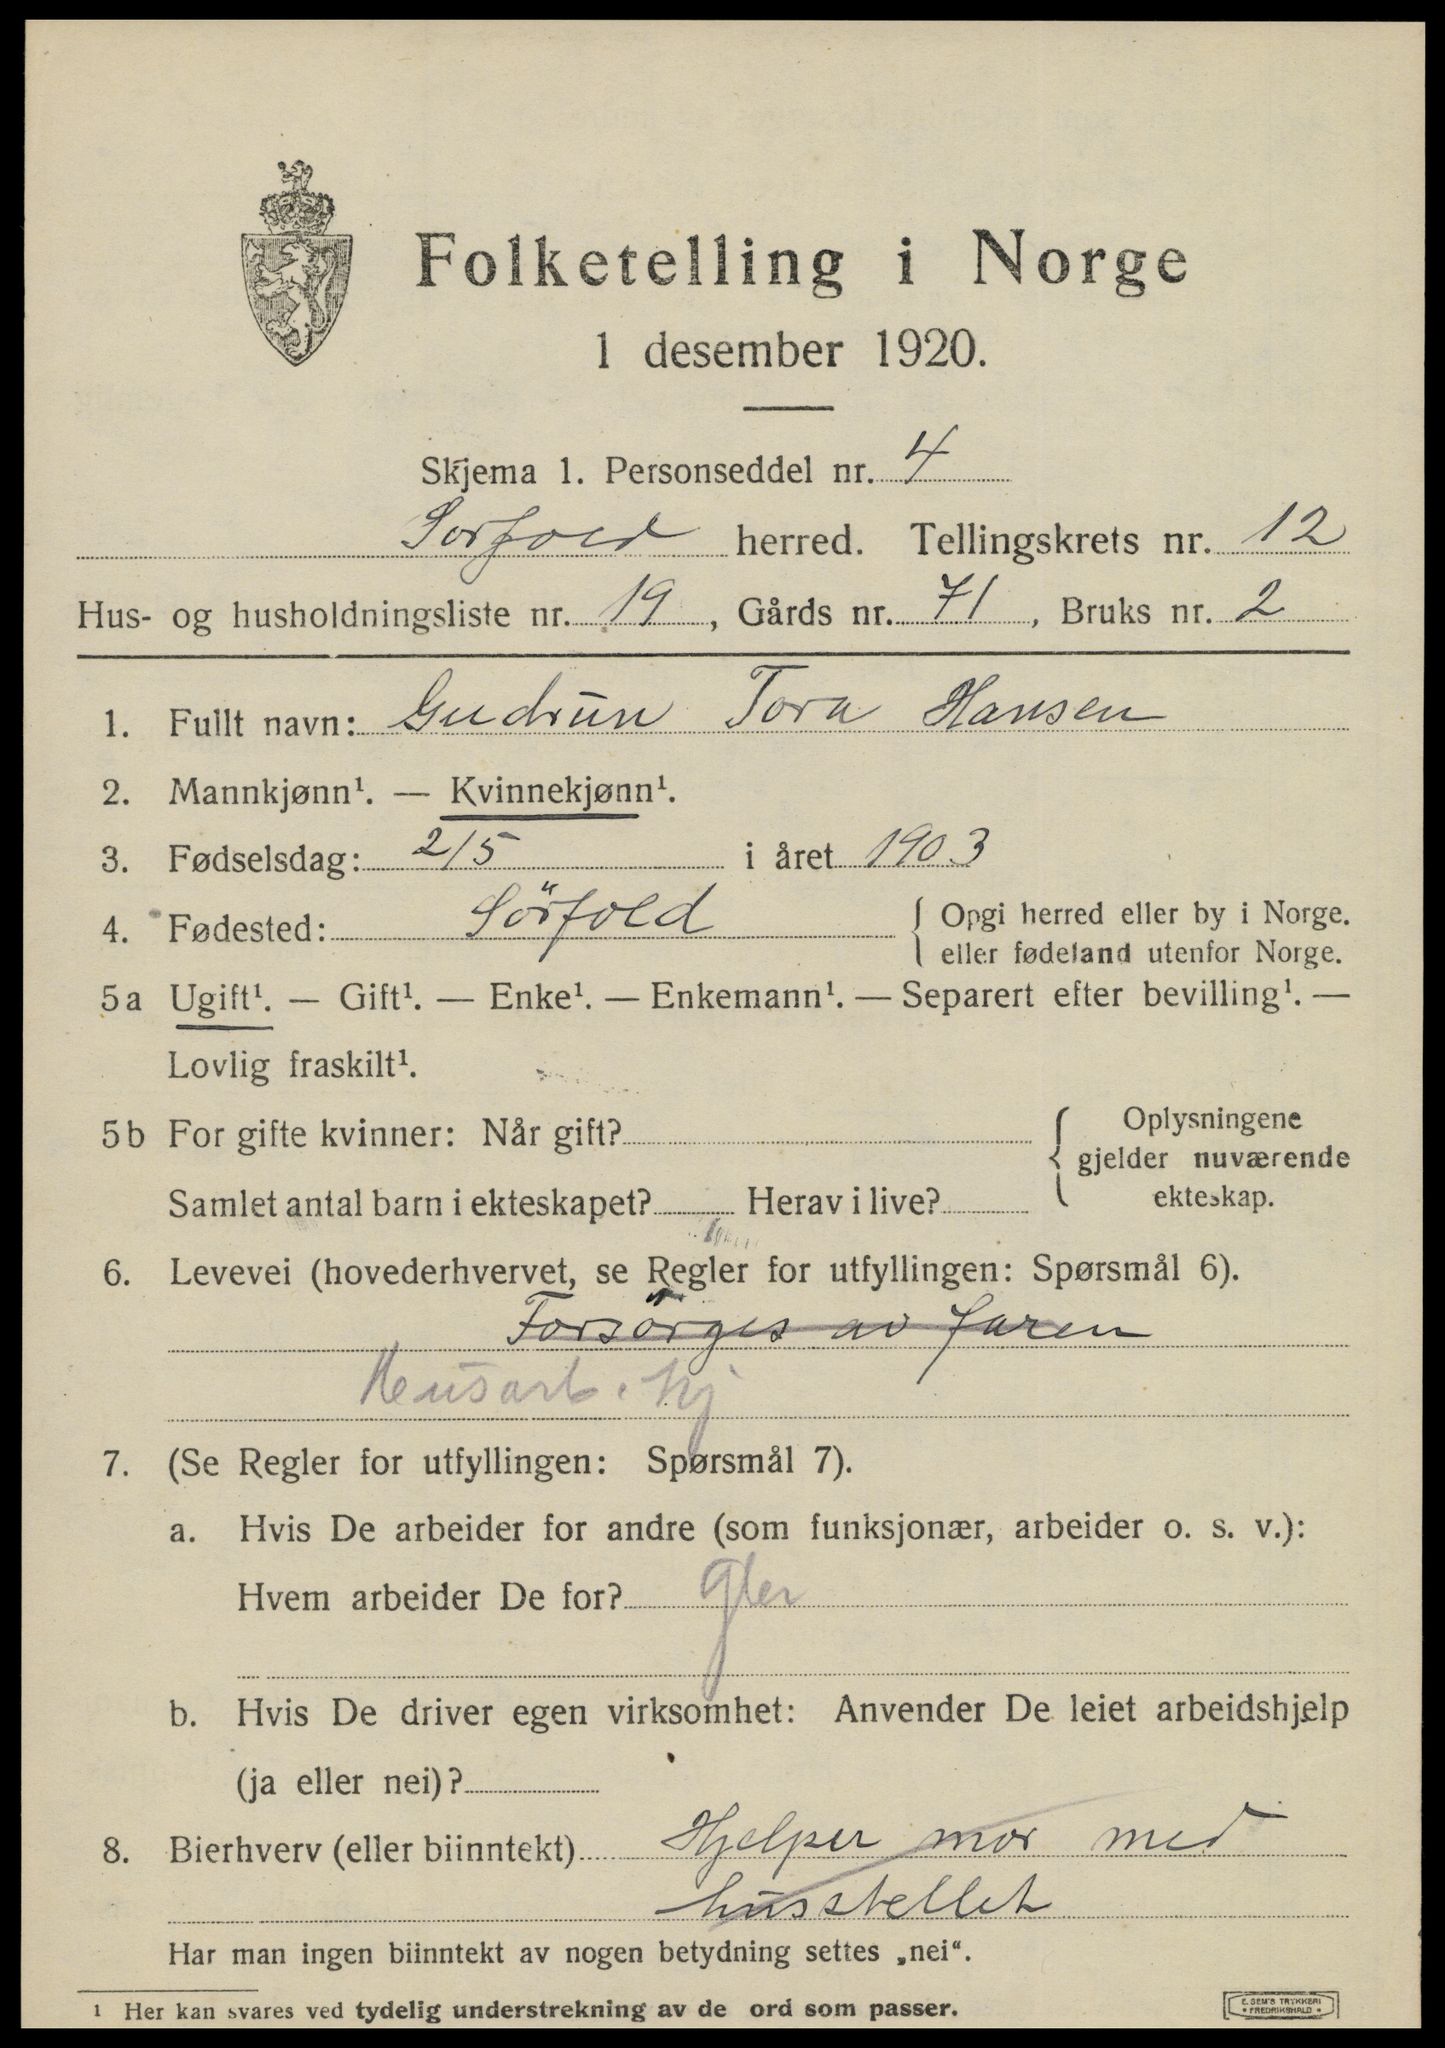 Folketelling i Norge
1 desember 1920.
Skjema 1. Personseddel nr. 4
Sørfold herred. Tellingskrets nr. 12
Hus- og husholdningsliste nr. 19, Gårds nr. 71, Bruks nr. 2
1. Fullt navn: Gudrun Tora Hansen
2. Mannkjønn¹. — Kvinnekjønn¹.
3. Fødselsdag: 2/5 i året 1903
4. Fødested: Sörfold { Opgi herred eller by i Norge.
eller fødeland utenfor Norge.
5a Ugift¹. — Gift¹. — Enke¹. — Enkemann¹. — Separert efter bevilling¹. —
Lovlig fraskilt¹.
5b For gifte kvinner: Når gift? { Oplysningene
gjelder nuværende
Samlet antal barn i ekteskapet? Herav i live? ekteskap.
6. Levevei (hovederhvervet, se Regler for utfyllingen: Spørsmål 6).
Forsörges av faren
Husarb. hj
7. (Se Regler for utfyllingen: Spørsmål 7).
a. Hvis De arbeider for andre (som funksjonær, arbeider o. s. v.):
Hvem arbeider De for?
b. Hvis De driver egen virksomhet: Anvender De leiet arbeidshjelp
(ja eller nei)?
8. Bierhverv (eller biinntekt) Hjelper mor med
husstellet
Har man ingen biinntekt av nogen betydning settes „nei“.
¹ Her kan svares ved tydelig understrekning av de ord som passer.
E. SEM'S TRYKKERI
• FREDRIKSHALD •